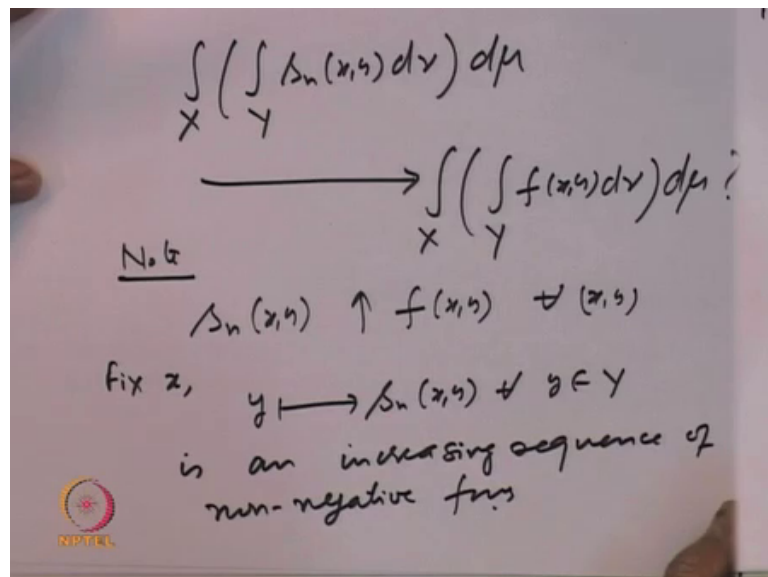 ∫_X ( ∫_Y s_n(x,y) dν ) dμ
⟶ ∫_X ( ∫_Y f(x,y) dν ) dμ ?
N.G
s_n(x,y) ↑ f(x,y) ∀ (x,y)
Fix x, y ⟼ s_n(x,y) ∀ y ∈ Y
is an increasing sequence of
non-negative fns
NPTEL